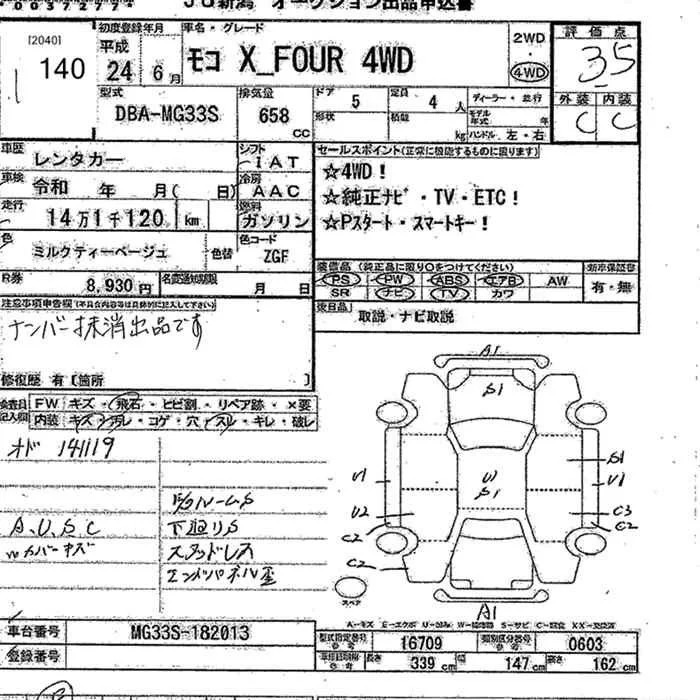 00398774 JU新潟 オークション出品申込書
[2040]
140
初度登録年月
平成
24年 6月
車名・グレード
モコ X_FOUR 4WD
2WD
・
4WD
評価点
3.5
外装 内装
C C
型式
DBA-MG33S
排気量
658 CC
ドア 5
定員 4 人
形状
積載 kg
ディーラー・並行
モデル年式 年
ハンドル 左・右
車歴
レンタカー
シフト
IAT
車検
令和 年 月( 日)
冷房
AAC
走行
14万1千120 km
燃料
ガソリン
色
ミルクティーベージュ
色替
色コード
ZGF
R券
8,930円
名変通知期限
月 日
セールスポイント(正常に機能するものに限ります)
☆4WD!
☆純正ナビ・TV・ETC!
☆Pスタート・スマートキー!
装備品 (純正品に限り○をつけてください)
PS PW ABS エアB AW
SR ナビ TV カワ
新車保証書
有・無
後日品
取説・ナビ取説
注意事項申告欄(不具合内容等は具体的に記入して下さい)
ナンバー抹消出品です
修復歴 有 [箇所 ]
検査員記入欄
FW キズ・飛石・ヒビ割・リペア跡・×要
内装 キズ・汚レ・コゲ・穴・スレ・キレ・破レ
オド 141119
ルームS
A,U,S,C
下廻りS
Wカバーキズ
スタッドレス
エンドパネル歪
A1
S1
S1
U1
W
S1
U1
U2
C3
C2
C2
C2
A1
スペア
A-キズ E-エクボ U-凹み W-補修跡 S-サビ C-腐食 XX-交換済
車台番号
MG33S-182013
登録番号
型式指定番号
参考
16709
類別区分番号
参考
0603
車検証明細
参考
長さ 339 cm 幅 147 cm 高さ 162 cm